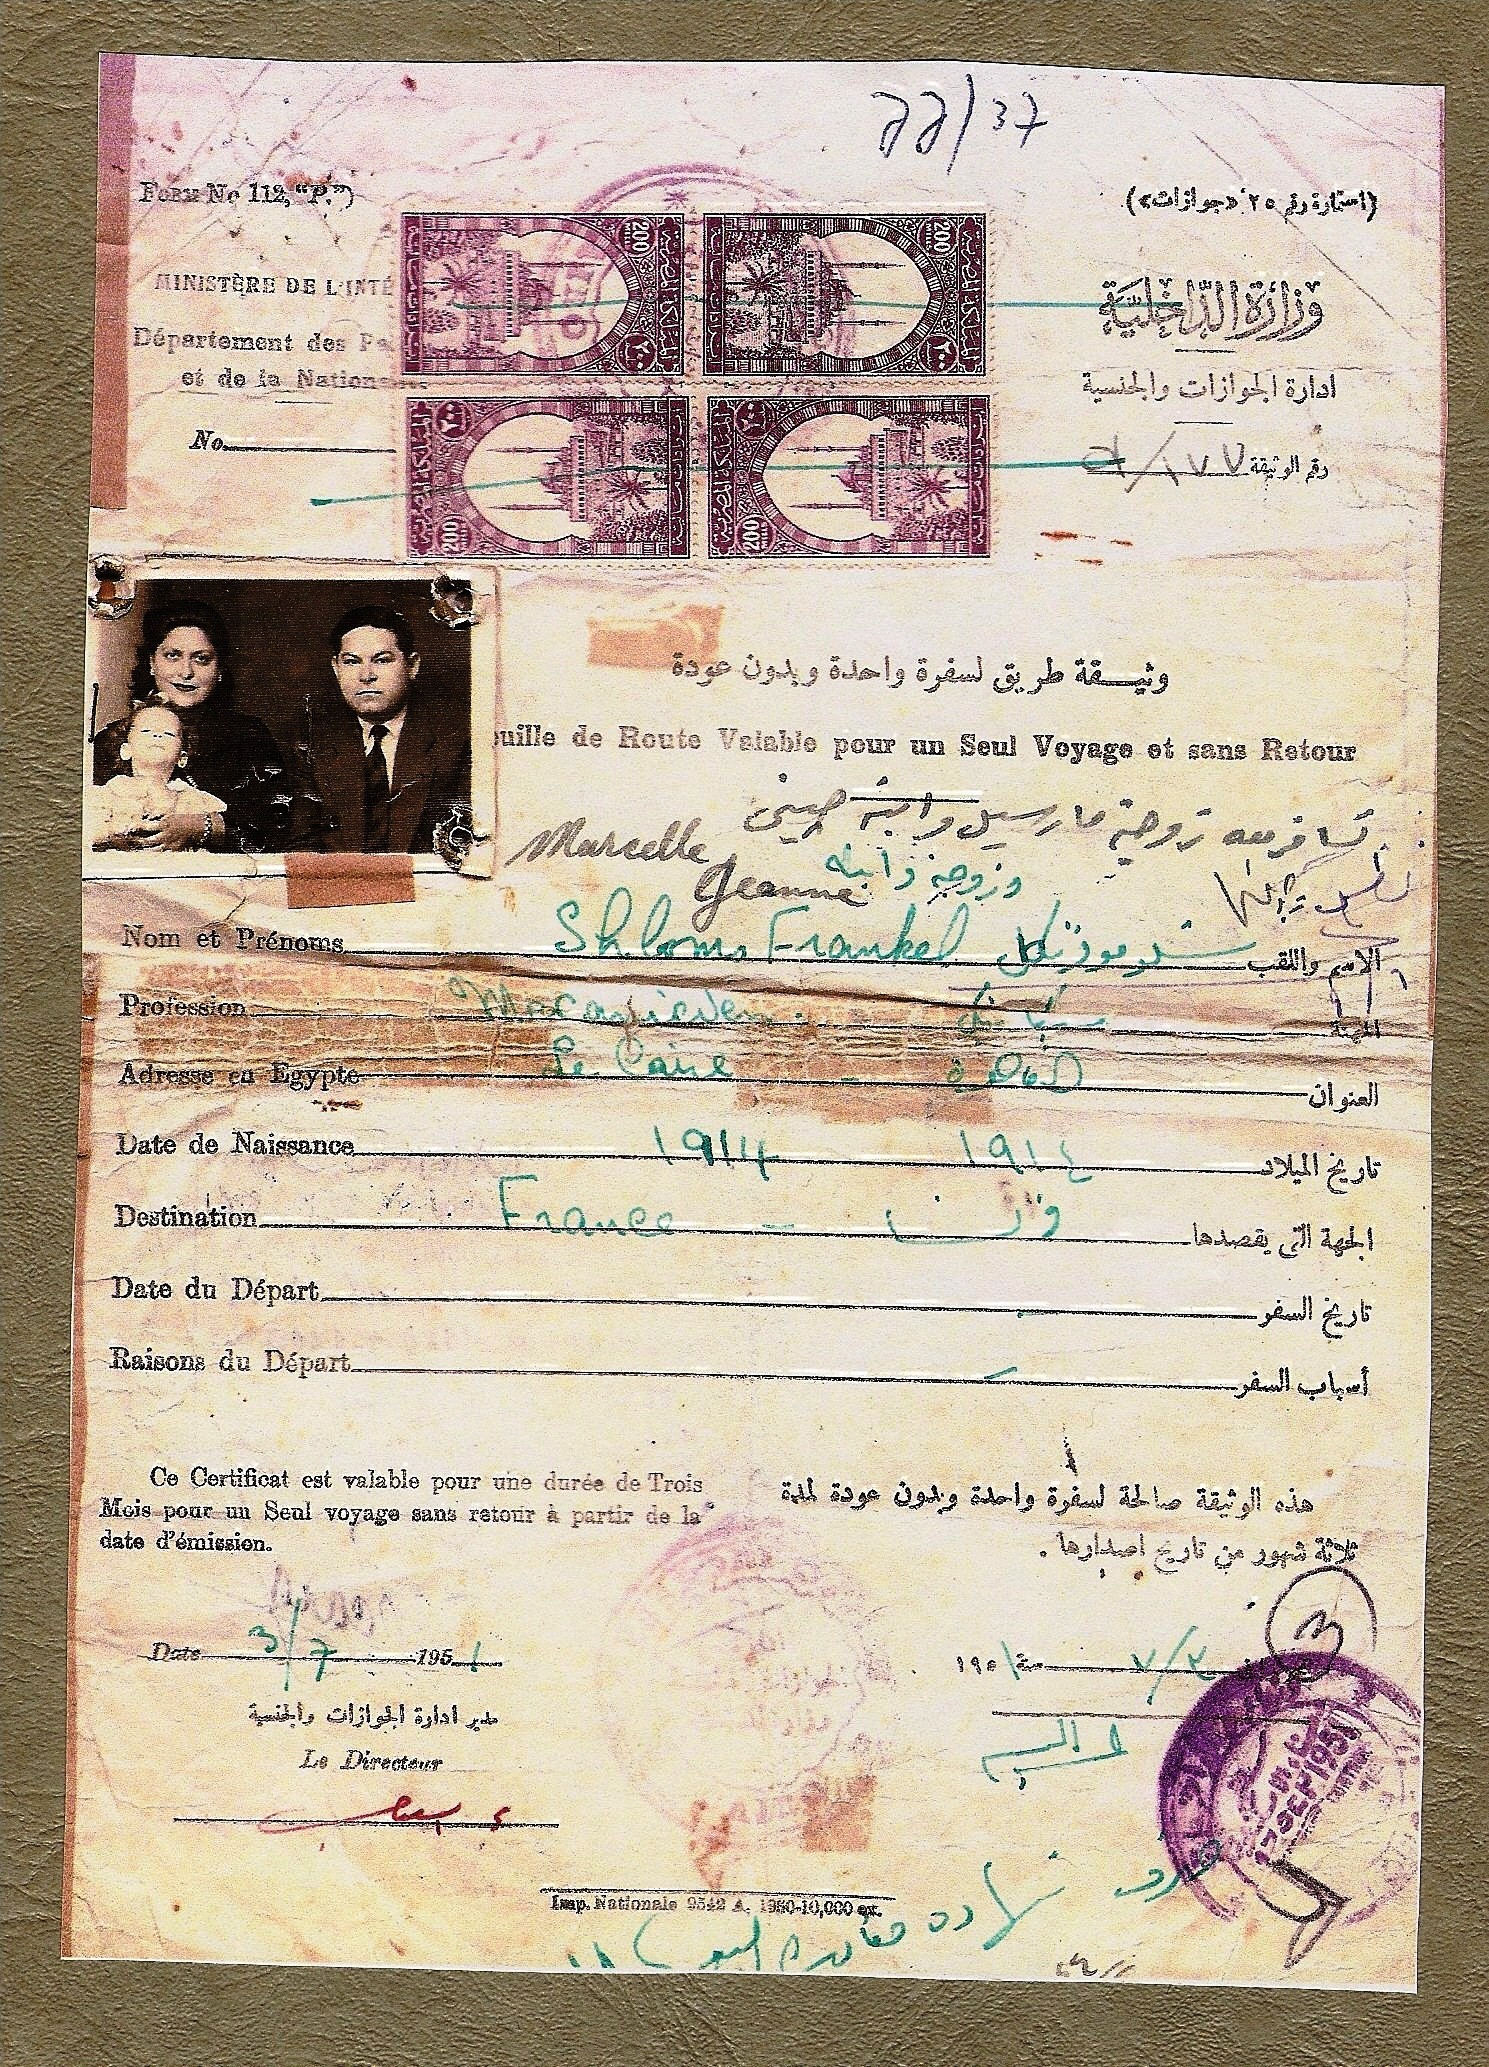 77/37
FORM No 112, "P.")
(استمارة رقم ٢٥ «جوازات»)
MINISTÈRE DE L'INTÉ
Département des Pa
et de la Nationa
No.
وزارة الداخلية
ادارة الجوازات والجنسية
رقم الوثيقة
200
200
200
200
وثيقة طريق لسفرة واحدة وبدون عودة
uille de Route Valable pour un Seul Voyage et sans Retour
زوجية مارسيل وابنة جيني
Marcelle
Jeanne
وزوجة وابنة
Nom et Prénoms Shlomo Frankel الاسم واللقب
Profession المهنة
Adresse en Egypte Le Caire - القاهرة العنوان
Date de Naissance 1914 ١٩١٤ تاريخ الميلاد
Destination France - فرنسا الجهة التي يقصدها
Date du Départ - تاريخ السفر
Raisons du Départ - أسباب السفر
Ce Certificat est valable pour une durée de Trois
Mois pour un Seul voyage sans retour à partir de la
date d'émission.
هذه الوثيقة صالحة لسفرة واحدة وبدون عودة لمدة
ثلاثة شهور من تاريخ اصدارها .
3
Date 3/7 1951
٣/٧ سنة ١٩٥١
مدير ادارة الجوازات والجنسية
Le Directeur
17 SEP 1951
Imp. Nationale 9542 A, 1950-10,000 ex.